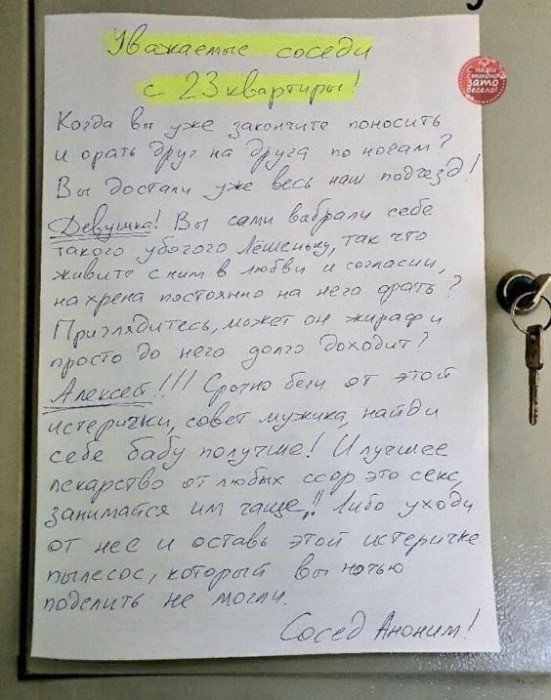 Уважаемые соседи
с 23 квартиры!
С нами
стыдно,
зато
весело!
Когда вы уже закончите поносить
и орать друг на друга по ночам?
Вы достали уже весь наш подъезд!
Девушка! Вы сами выбрали себе
такого убогого Лёшеньку, так что
живите с ним в любви и согласии,
нахрена постоянно на него орать?
Приглядитесь, может он жираф и
просто до него долго доходит?
Алексей!!! Срочно беги от этой
истерички, совет мужика, найди
себе бабу получше! И лучшее
лекарство от любых ссор это секс,
занимайся им чаще!! Либо уходи
от нее и оставь этой истеричке
пылесос, который вы ночью
поделить не могли.
Сосед Аноним!